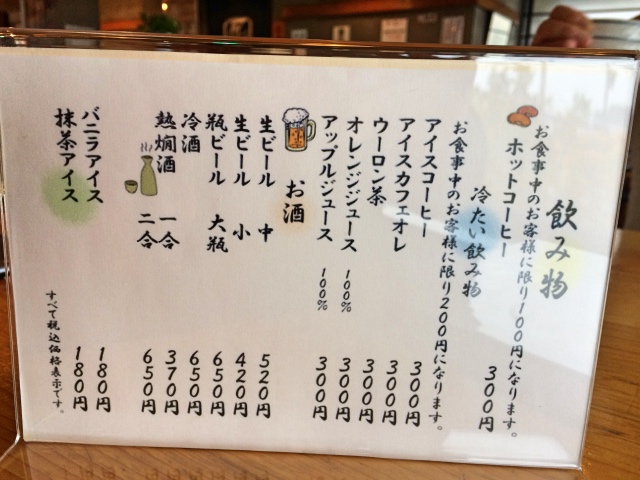 飲み物
ホットコーヒー 300円
お食事中のお客様に限り100円になります。
冷たい飲み物
お食事中のお客様に限り200円になります。
アイスコーヒー 300円
アイスカフェオレ 300円
ウーロン茶 300円
オレンジジュース 100% 300円
アップルジュース 100% 300円
お酒
生ビール 中 520円
生ビール 小 420円
瓶ビール 大瓶 650円
冷酒 650円
熱燗酒 一合 370円
二合 650円
バニラアイス 180円
抹茶アイス 180円
すべて税込価格表示です。